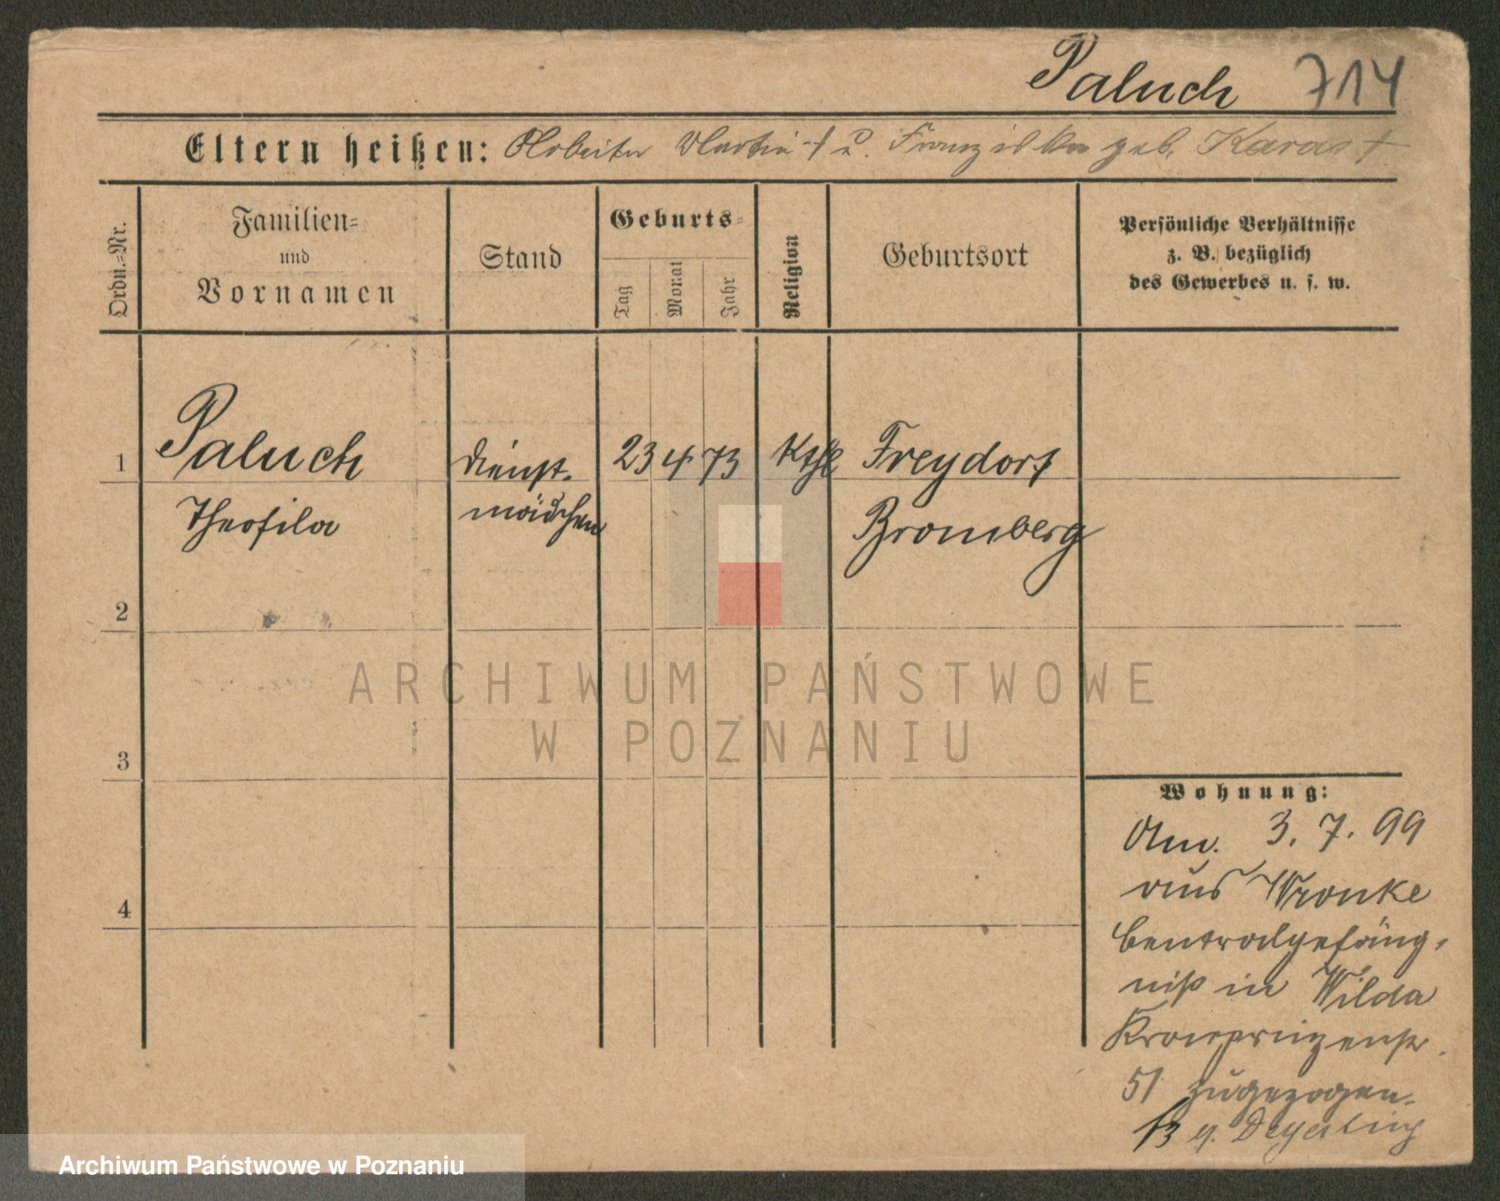 Paluch 714
Eltern heißen: Arbeiter Martin † u. Franziska geb. Karas †
Ordn.-Nr.
Familien-
und
Vornamen
Stand
Geburts-
Tag
Monat
Jahr
Religion
Geburtsort
Persönliche Verhältnisse
z. B. bezüglich
des Gewerbes u. s. w.
1 Paluch Dienst- 23 4 73 Kthl Freydorf
Theofila mädchen Bromberg
2
3
4
ARCHIWUM PAŃSTWOWE
W POZNANIU
Wohnung:
Am. 3. 7. 99
aus Wronke
Centralgefäng-
niß in Wilda
Kronprinzenstr.
51 zugezogen.
b.
Archiwum Państwowe w Poznaniu